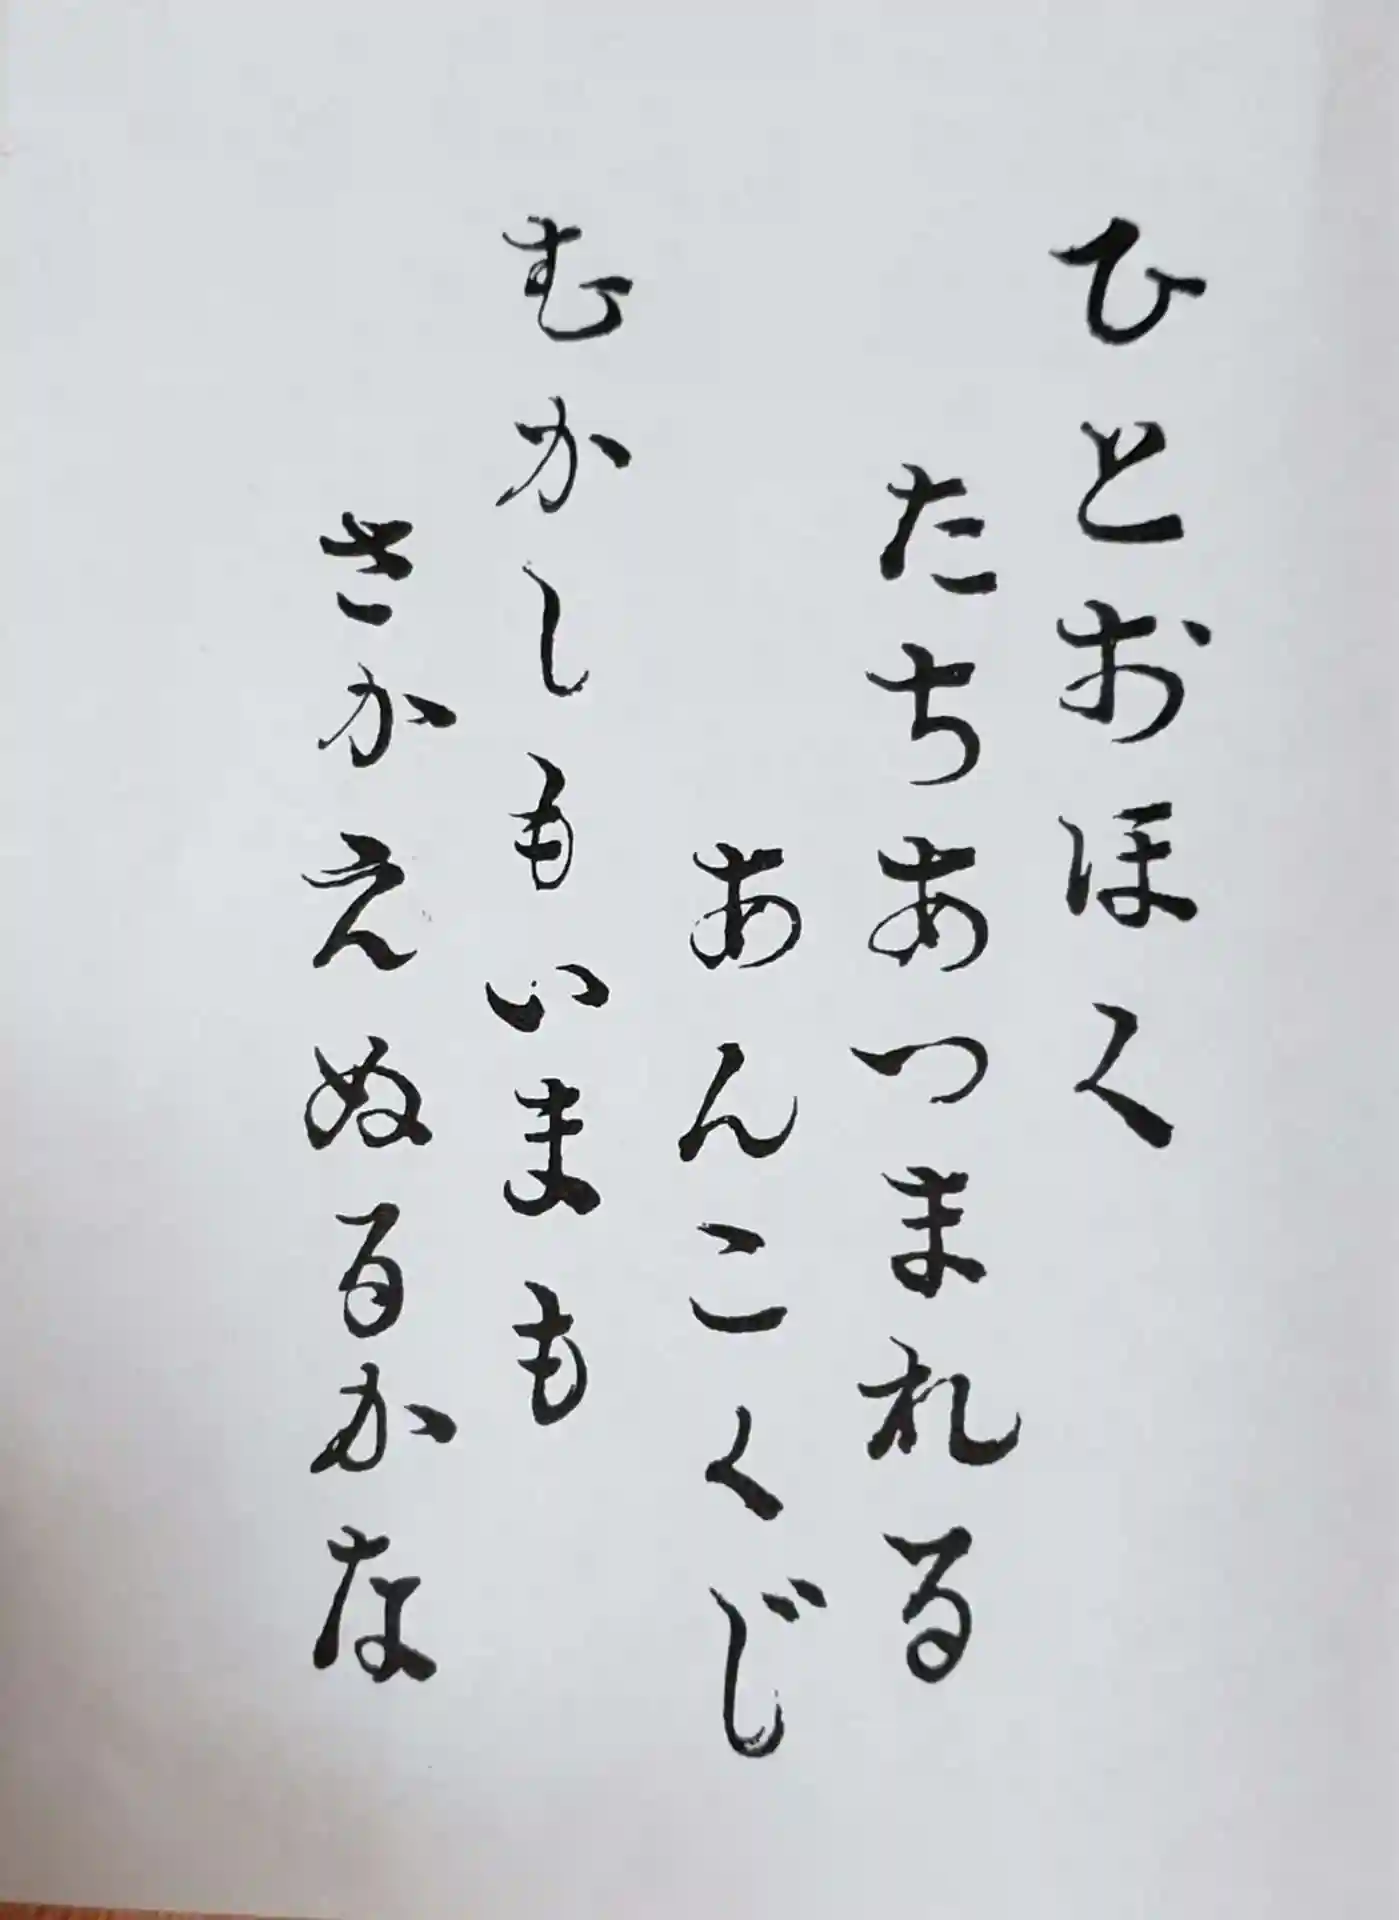 ひとおほく
たちあつまれる
あんこくじ
むかしもいまも
さかえぬるかな